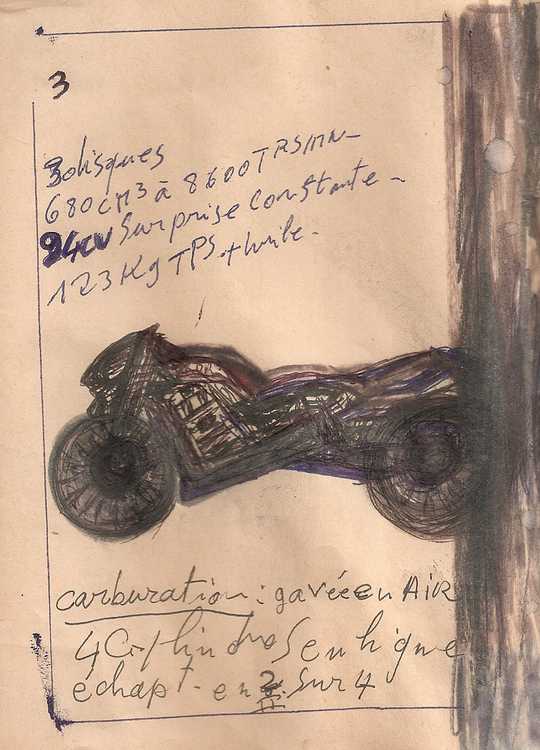 3
3 disques
680 CM3 à 8600 TRS/MN
94CV Surprise constante
123 Kg TPS + huile.
carburation : gavée en AiR
4 Cylindres en ligne
échapt. en 2 sur 4